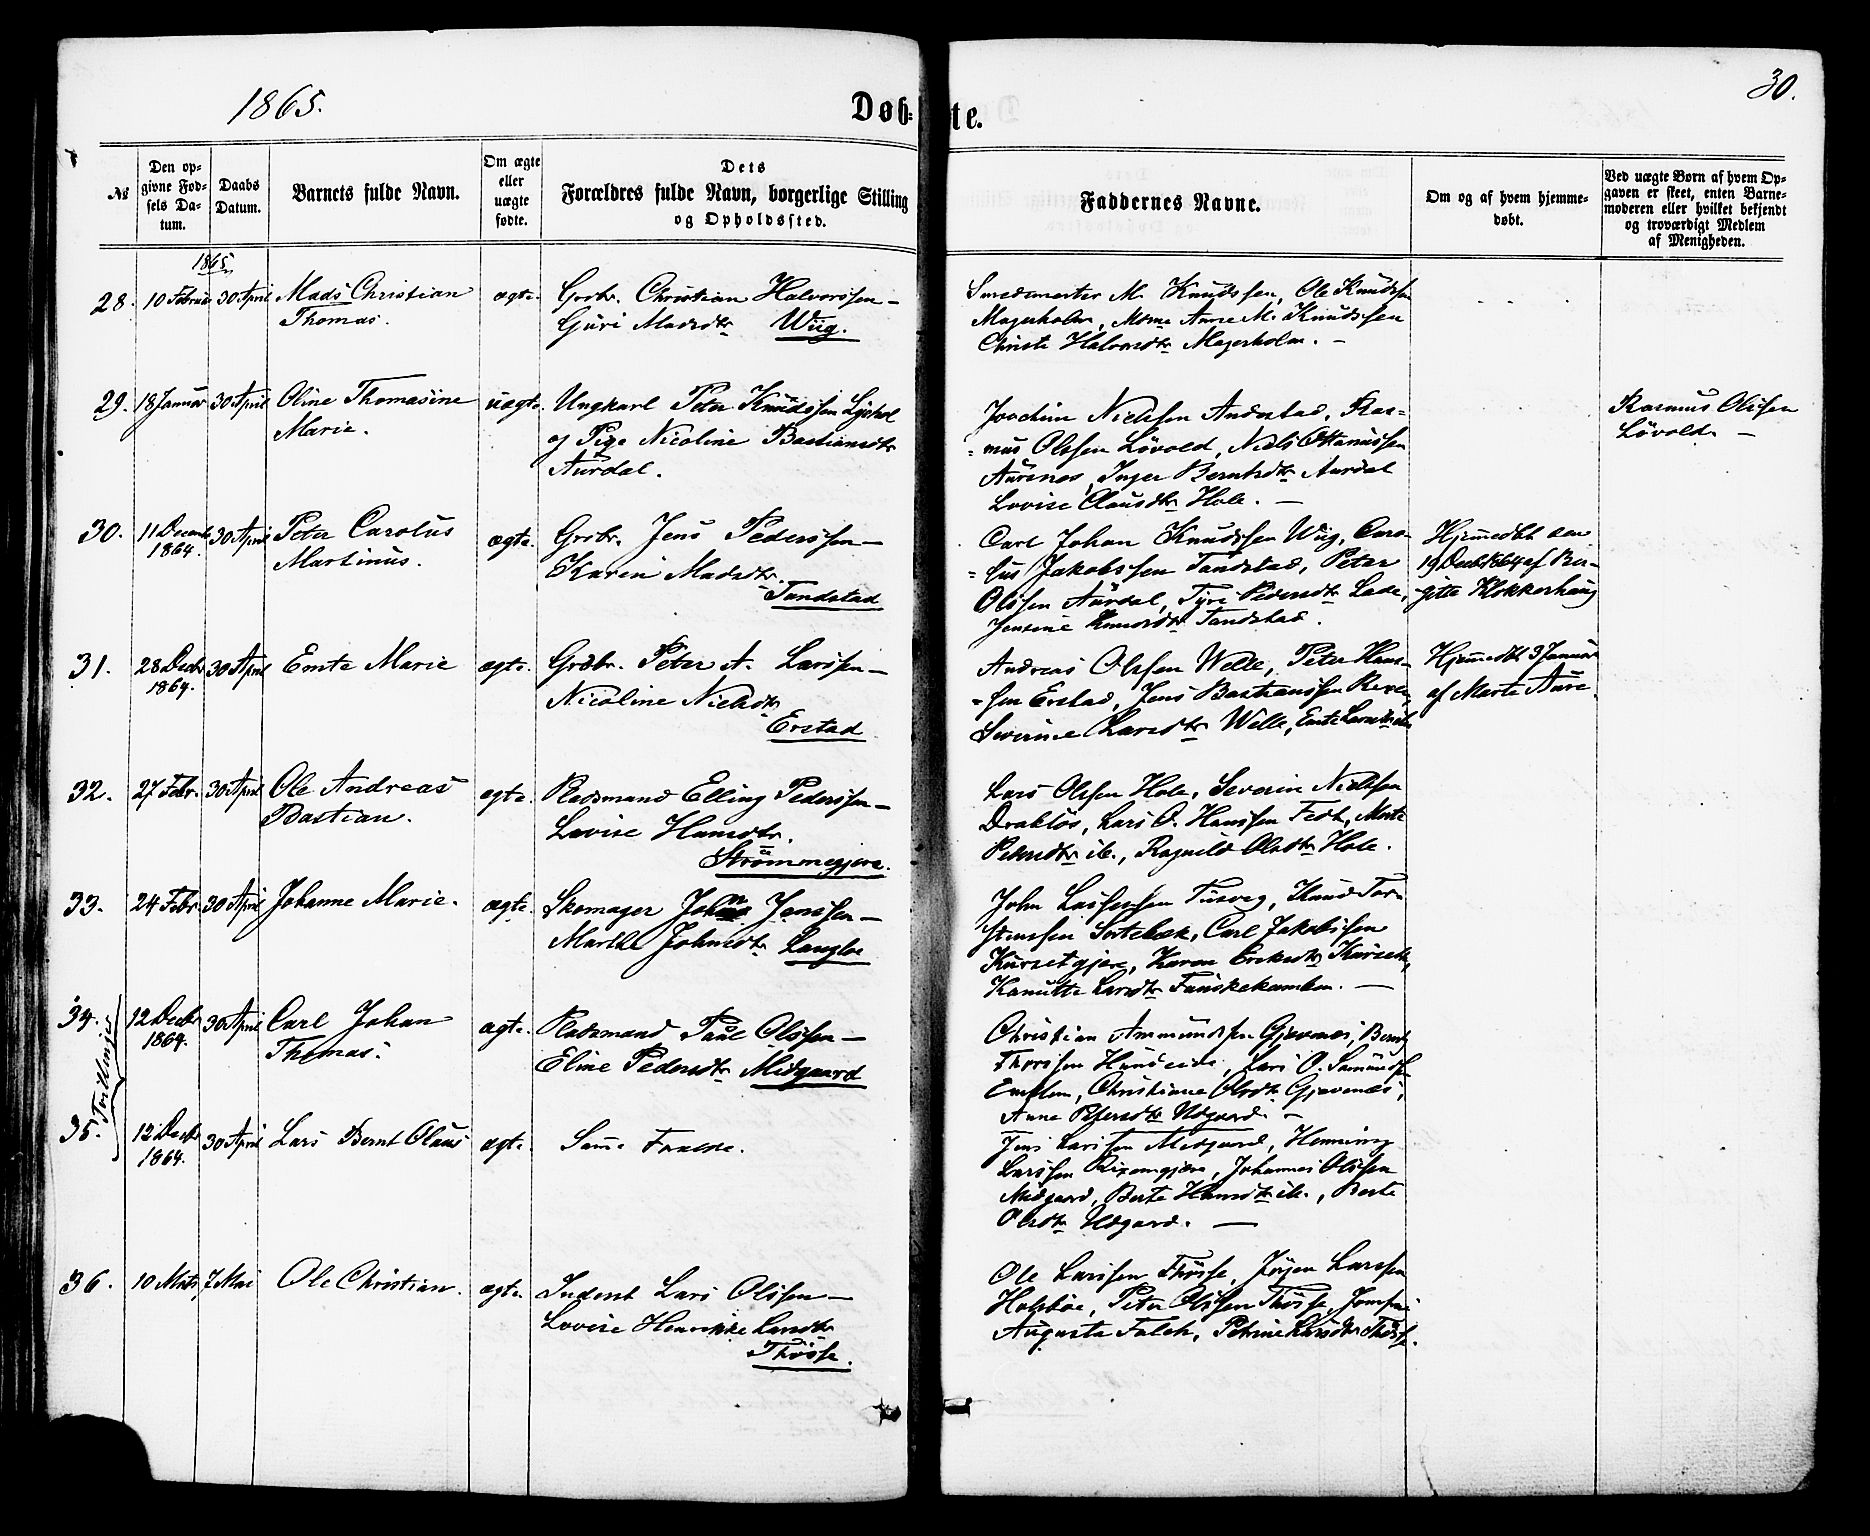 1865.
Døb-te.
30.
№
Den op-
givne Fød-
sels Da-
tum.
Daabs
Datum.
Barnets fulde Navn.
Om ægte
eller
uægte
fødte.
Dets
Forældres fulde Navn, borgerlige Stilling
og Opholdssted.
Faddernes Navne.
Om og af hvem hjemme-
døbt.
Ved uægte Børn af hvem Op-
gaven er skeet, enten Barne-
moderen eller hvilket bekjendt
og troværdigt Medlem
af Menigheden.
1865
28. 10 Februar 30 April Mads Christian
Thomas.
ægte.
Grbr. Christian Halvorssen –
Guri Madsdtr Wiig.
Smedemester M. Knudssen, Ole Knudssen
Magerholm, Anne M. Knudssen
Christi Halvorsdtr Magerholm. –
29. 18 Januar 30 April Oline Thomasine
Marie.
uægte.
Ungkarl Peter Knudssen
og Pige Nicoline Bastiansdtr
Aurdal.
Joachim Nielssen Andestad, Ras-
mus Olssen Løvold, Niels Ottenussen
Aursnes, Inger Berntsdtr Aurdal
Lovise Clausdtr Hole. –
Rasmus Olssen
Løvold. –
30. 11 Decemb 1864. 30 April Peter Carolus
Martinus.
ægte.
Grbr. Jens Pederssen –
Karen Madsdtr.
Tandstad
Carl Johan Knudssen Wiig, Caro-
lus Jakobssen Tandstad, Peter
Olssen Aurdal, Pedersdtr Lade,
Jensine Knudsdtr Tandstad.
Hjemmedbt den
19 Decb 1864 af Bir-
gitte Klokkerhaug
31. 28 Decbr 1864. 30 April Emte Marie
ægte.
Grdbr. Peter A. Larssen –
Nicoline Nielsdtr
Erstad
Andreas Olssen Welle, Peter Hans-
sen Erstad, Jens Bastianssen
Severine Larsdtr Welle, Emte Larsdtr ib.
Hjemmedbt 3 Januar
af Marte Aure.
32. 27 Febr. 30 April Ole Andreas
Bastian.
ægte.
Pladsmand Elling Pederssen –
Lovise Hansdtr.
Strømmegjære.
Lars Olssen Hole, Severin Nielssen
Drabløs, Lars O. Hanssen Fedt, Marte
Pedersdtr ib., Ragnild Olsdtr Hole.
33. 24 Febr. 30 April Johanne Marie.
ægte.
Skomager John Jenssen –
Marthe Johnsdtr Langlo
John Tusvig, Knud Tor-
stenssen Sortebæk, Carl Jakobssen
Kursetgjære, Karen Eriksdtr Kurseth,
Kanutte Larsdtr –
34. 12 Decbr 1864. 30 April Carl Johan
Thomas.
ægte.
Pladsmand Paul Olssen –
Eline Pedersdtr Midgaard
Christian Ammundssen Gjævenæs, Bernt
Thorssen Hundeide, Lars O.
Emblem, Christiane Olsdtr Gjævenæs,
Anne Petersdtr Udgaard. –
Tvillinger
35. 12 Decbr 1864. 30 April Lars Bernt Olaus
ægte.
Samme Forældre.
Jens Larssen Midgaard, Henning
Larssen Johannes Olssen
Midgaard, Berte Hansdtr ib., Berte
Olsdtr Udgaard. –
36. 10 Marts 7 Mai Ole Christian.
ægte.
Inderst Lars Olssen –
Lovise Henrikke Larsdtr
Thøsse.
Ole Larssen Thøsse, Jørgen Larssen
Holsbøe, Peter Olssen Thøsse,
Augusta Falch, Petrine Larsdtr Thøsse.